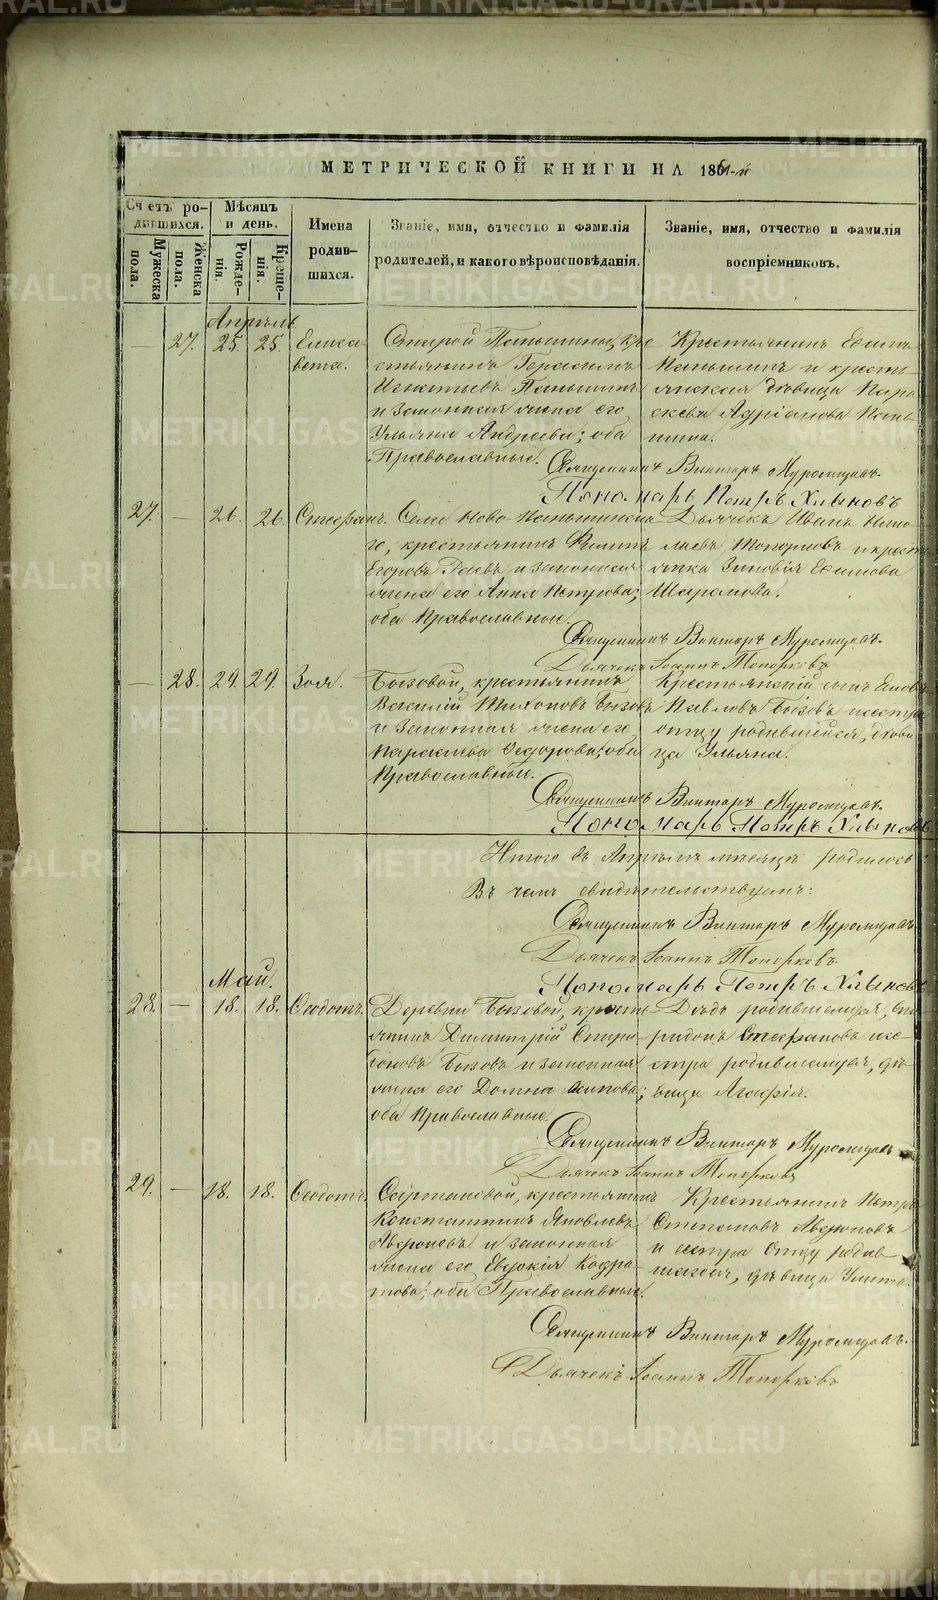 МЕТРИЧЕСКОЙ КНИГИ НА 1861-й
Счетъ родившихся.
Мужеска пола.
Женска пола.
Мѣсяцъ и день.
Рожденія.
Крещенія.
Имена родившихся.
Званіе, имя, отчество и фамилія родителей, и какого вѣроисповѣданія.
Званіе, имя, отчество и фамилія воспріемниковъ.
Апрѣль
— 27. 25. 25. Елиса
вета.
Старой Паньшиной, кре
стьянинъ Герасимъ
Игнатьевъ Паньшинъ
и законная жена его
Ульяна Андреева; оба
Православные.
Крестьянинъ Ефимъ
Паньшинъ и кресть
янская дѣвица Пара
скева Адріанова Пань
шина.
Священникъ Викторъ Муромцевъ.
Пономарь Петръ Хлыновъ
27. — 26. 26. Стефанъ.
Села Ново-Паньшинска
го, крестьянинъ Филипъ
Егоровъ Раевъ и законная
жена его Анна Петрова;
оба Православные.
Дьячекъ Иванъ Нико
лаевъ Топорковъ и крест
янка Зиновія Ефимова
Шарапова.
Священникъ Викторъ Муромцевъ.
Дьячекъ Іоаннъ Топорковъ
— 28. 29. 29. Зоя.
Бызовой, крестьянинъ
Василій Тихоновъ Бызовъ
и законная жена его
Параскева Федорова; оба
Православные.
Крестьянскій сынъ
Павловъ Бызовъ и сестра
отцу родившейся, дѣви
ца Ульяна.
Священникъ Викторъ Муромцевъ.
Пономарь Петръ Хлыновъ
Итого въ Апрѣлѣ мѣсяцѣ родилось:
Въ чемъ свидѣтельствуемъ:
Священникъ Викторъ Муромцевъ
Дьячекъ Іоаннъ Топорковъ
Пономарь Петръ Хлыновъ
Май.
28. — 18. 18. Ѳеодотъ.
Деревни Бызовой, кресть
янинъ Димитрій Спири
доновъ Бызовъ и законная
жена его Домна Осипова;
оба Православные.
Дѣдъ родившагося, Спи
ридонъ Стефановъ и се
стра родившагося, дѣ
вица Агафія.
Священникъ Викторъ Муромцевъ
Дьячекъ Іоаннъ Топорковъ
29. — 18. 18. Ѳеодотъ.
крестьянинъ
Константинъ Яковлевъ
Авдюковъ и законная
жена его Евдокія Кодра
това; оба Православные.
Крестьянинъ Петръ
Степановъ Авдюковъ
и сестра отцу родив
шагося, дѣвица
Священникъ Викторъ Муромцевъ.
Дьячекъ Іоаннъ Топорковъ
METRIKI.GASO-URAL.RU